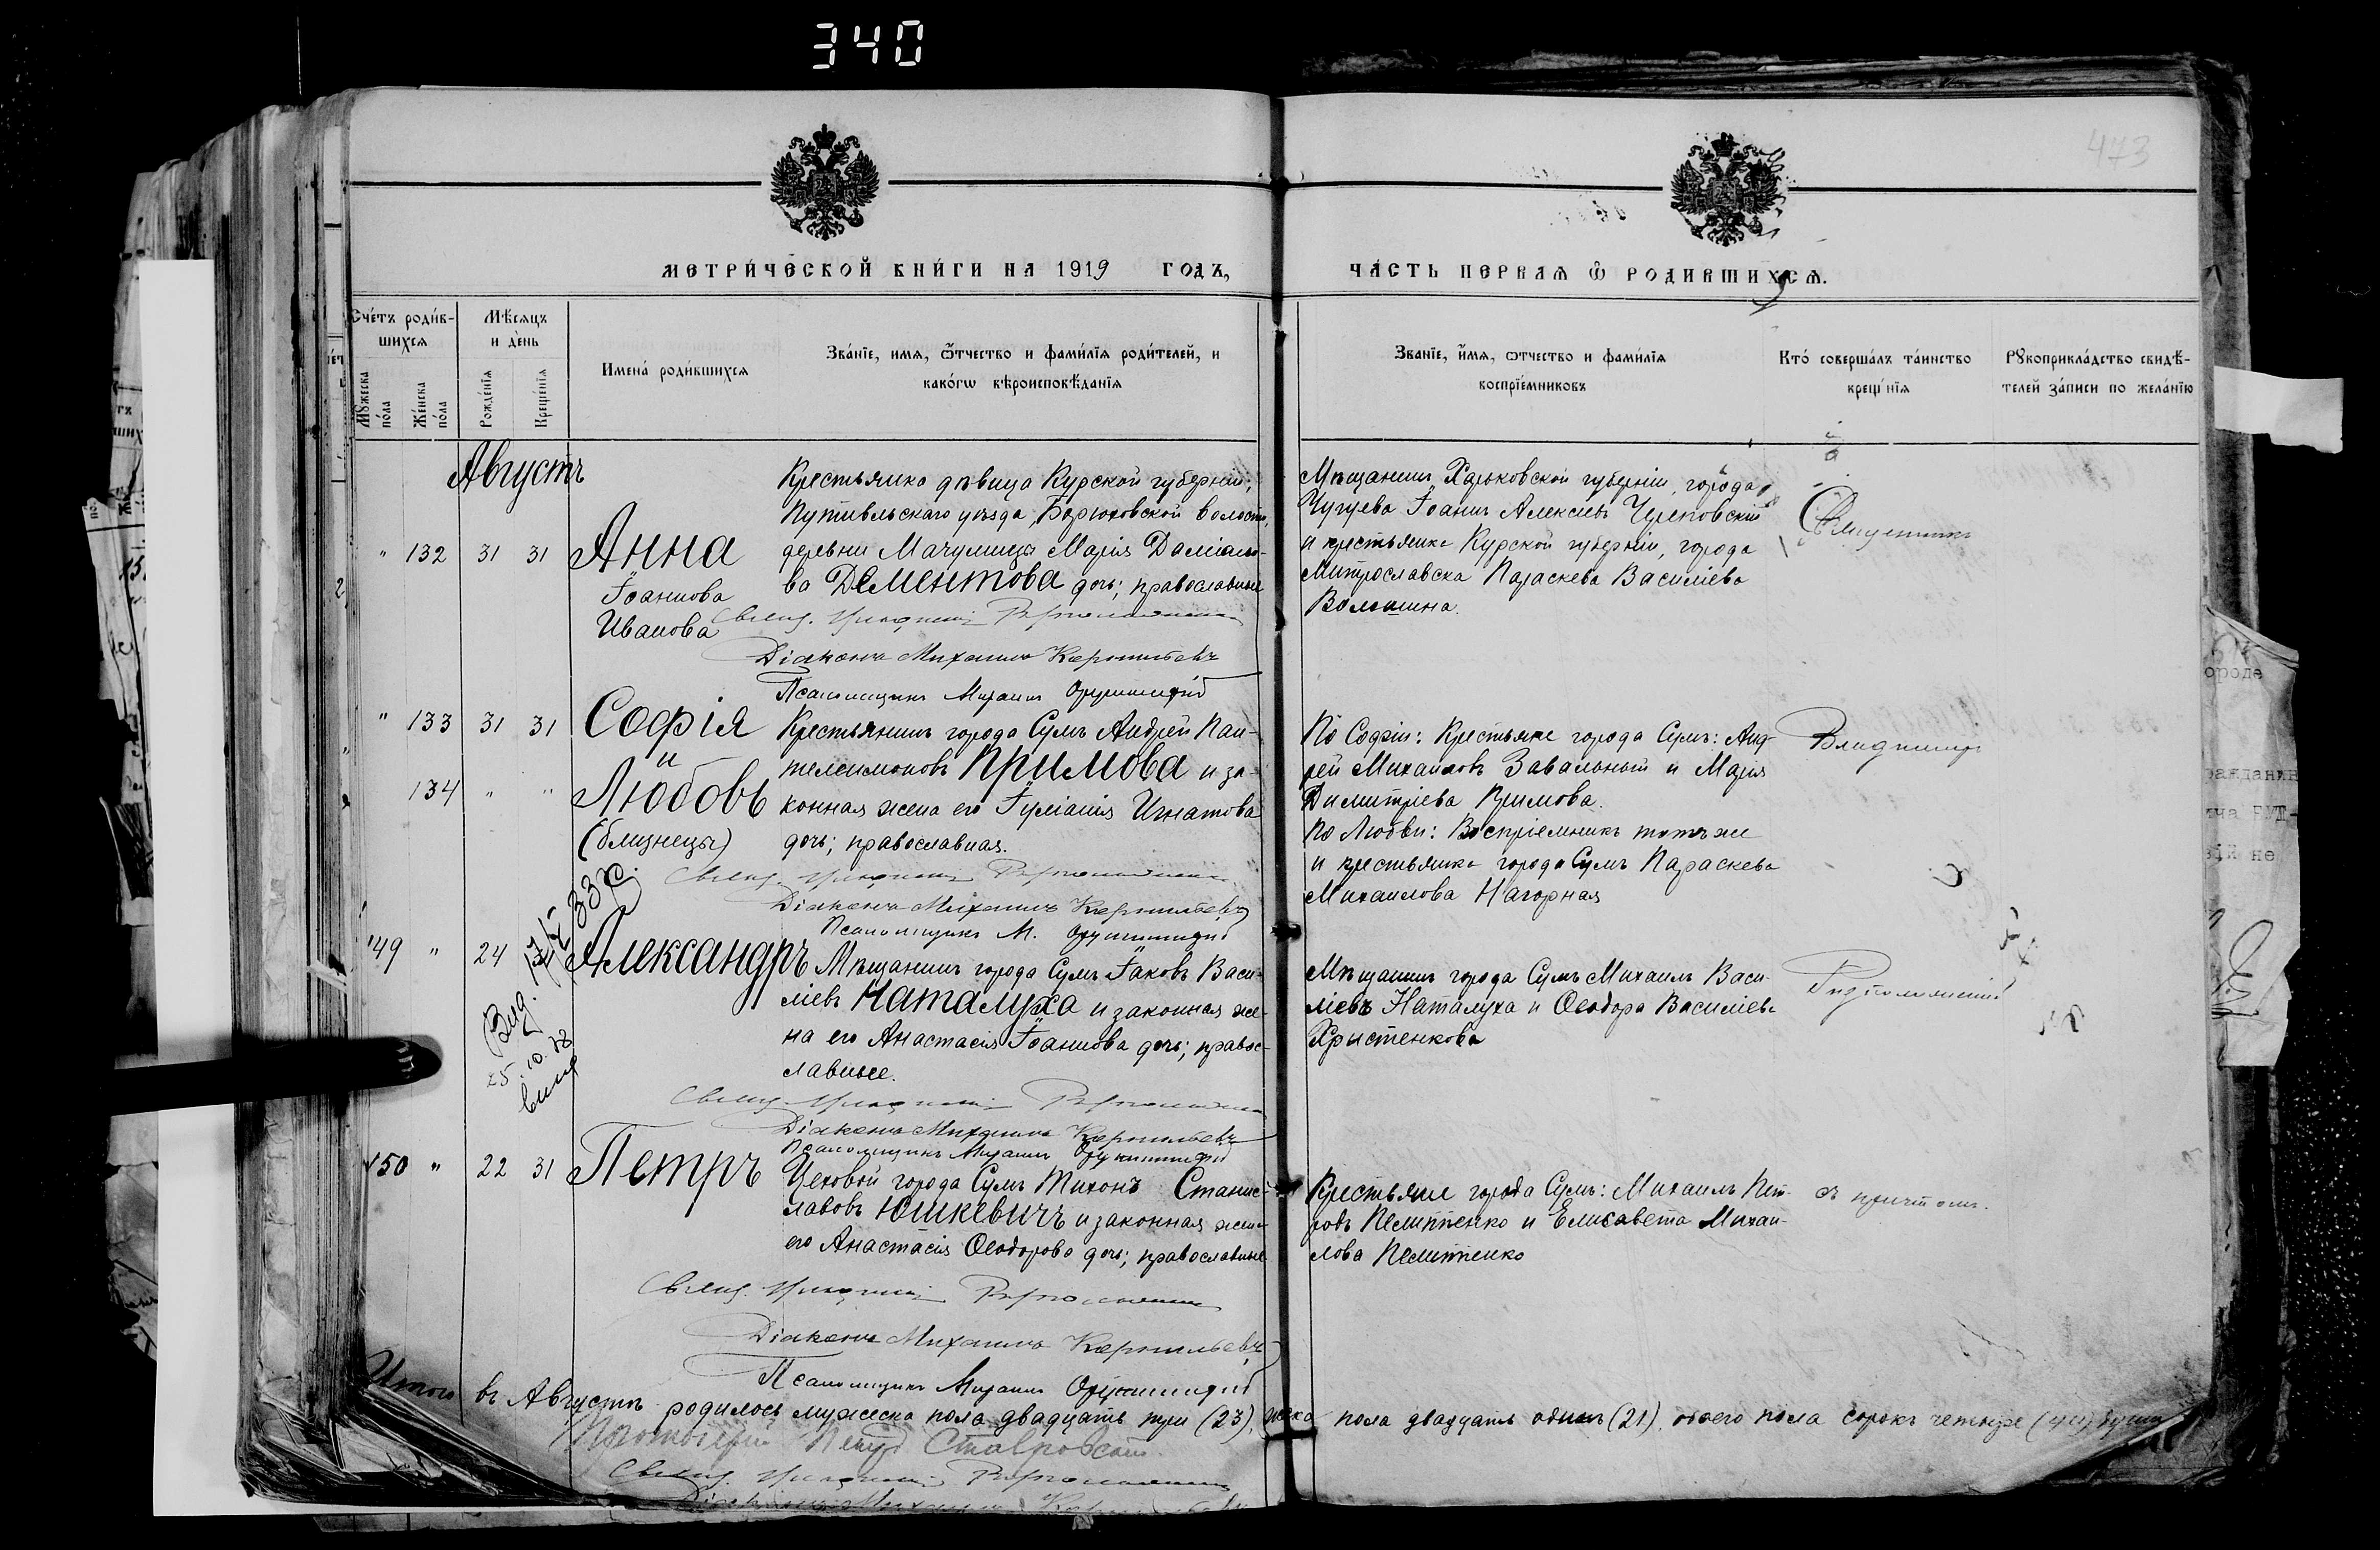 340
473
МЕТРИ́ЧЕСКОЙ КНИ́ГИ НА 1919 ГОДЪ,
ЧА́СТЬ ПЕРВАѦ Ѡ҃ РОДИВШИХСѦ.
Сче́тъ роди́в-
шихсѧ
Мꙋ́жеска
по́ла
Же́нска
по́ла
Мѣ́сѧцъ
и де́нь
Рожде́нїѧ
Креще́нїѧ
Имена́ роди́вшихсѧ
Зва́нїе, имѧ, ѿтчество и фами́лїѧ роди́телей, и
како́гѡ вѣроисповѣ́данїѧ
Званїе, и́мѧ, ѿтчество и фами́лїѧ
воспрїе́мниковъ
Кто́ соверша́лъ та́инство
креще́нїѧ
Рꙋкоприкла́дство свидѣ́-
телей за́писи по жела́нїю
Августъ
" 132 31 31 Анна
Іоаннова
Иванова
Крестьянка дѣвица Курской губерніи,
Путивльскаго уѣзда, Бѣрюховской волости,
деревни Мачулищи Марія Даміано-
ва Дементова дочь; православныя
Діаконъ Михаилъ Корнильевъ
Псаломщикъ Михаилъ
Мѣщанинъ Харьковской губерніи, города
Чугуева Іоаннъ Алексіевъ
и крестьянка Курской губерніи, города
Параскева Василіева
Волошина.
Священникъ
" 133 31 31 София
134 " " Любовь
(близнецы)
Крестьянинъ города Сумъ Андрей Пан-
телеимоновъ Примова и за-
конная жена его Іуліанія Игнатова
дочь; православная.
Діаконъ Михаилъ Корнильевъ
Псаломщикъ М.
По Софіи: Крестьяне города Сумъ: Анд-
рей Михаиловъ Завальный и Марія
Димитріева Примова.
По Любви: Воспріемникъ тотъ же
и крестьянка города Сумъ Параскева
Михаилова Нагорная
Владиміръ
149 " 24 Александръ
25.10.38
Мѣщанинъ города Сумъ Іаковъ Васи-
ліевъ Наталуха и законная же-
на его Анастасія Іоаннова дочь; правос-
лавные.
Діаконъ Михаилъ Корнильевъ
Псаломщикъ Михаилъ
Мѣщанинъ города Сумъ Михаилъ Васи-
ліевъ Наталуха и Ѳеодора Василіева
Христенкова
150 " 22 31 Петръ
Цеховой города Сумъ Тихонъ Станис-
лавовъ Юшкевичъ и законная жена
его Анастасія Ѳеодорова дочь; православные
Діаконъ Михаилъ Корнильевъ
Псаломщикъ Михаилъ
Крестьяне города Сумъ: Михаилъ Пет-
ровъ Пелипенко и Елисавета Михаи-
лова Пелипенко
съ причтомъ.
Итого въ Августѣ родилось мужеска пола двадцать три (23), женска пола двадцать одинъ (21), обоего пола сорокъ четыре (44) души
Протоіерей Ставровскій